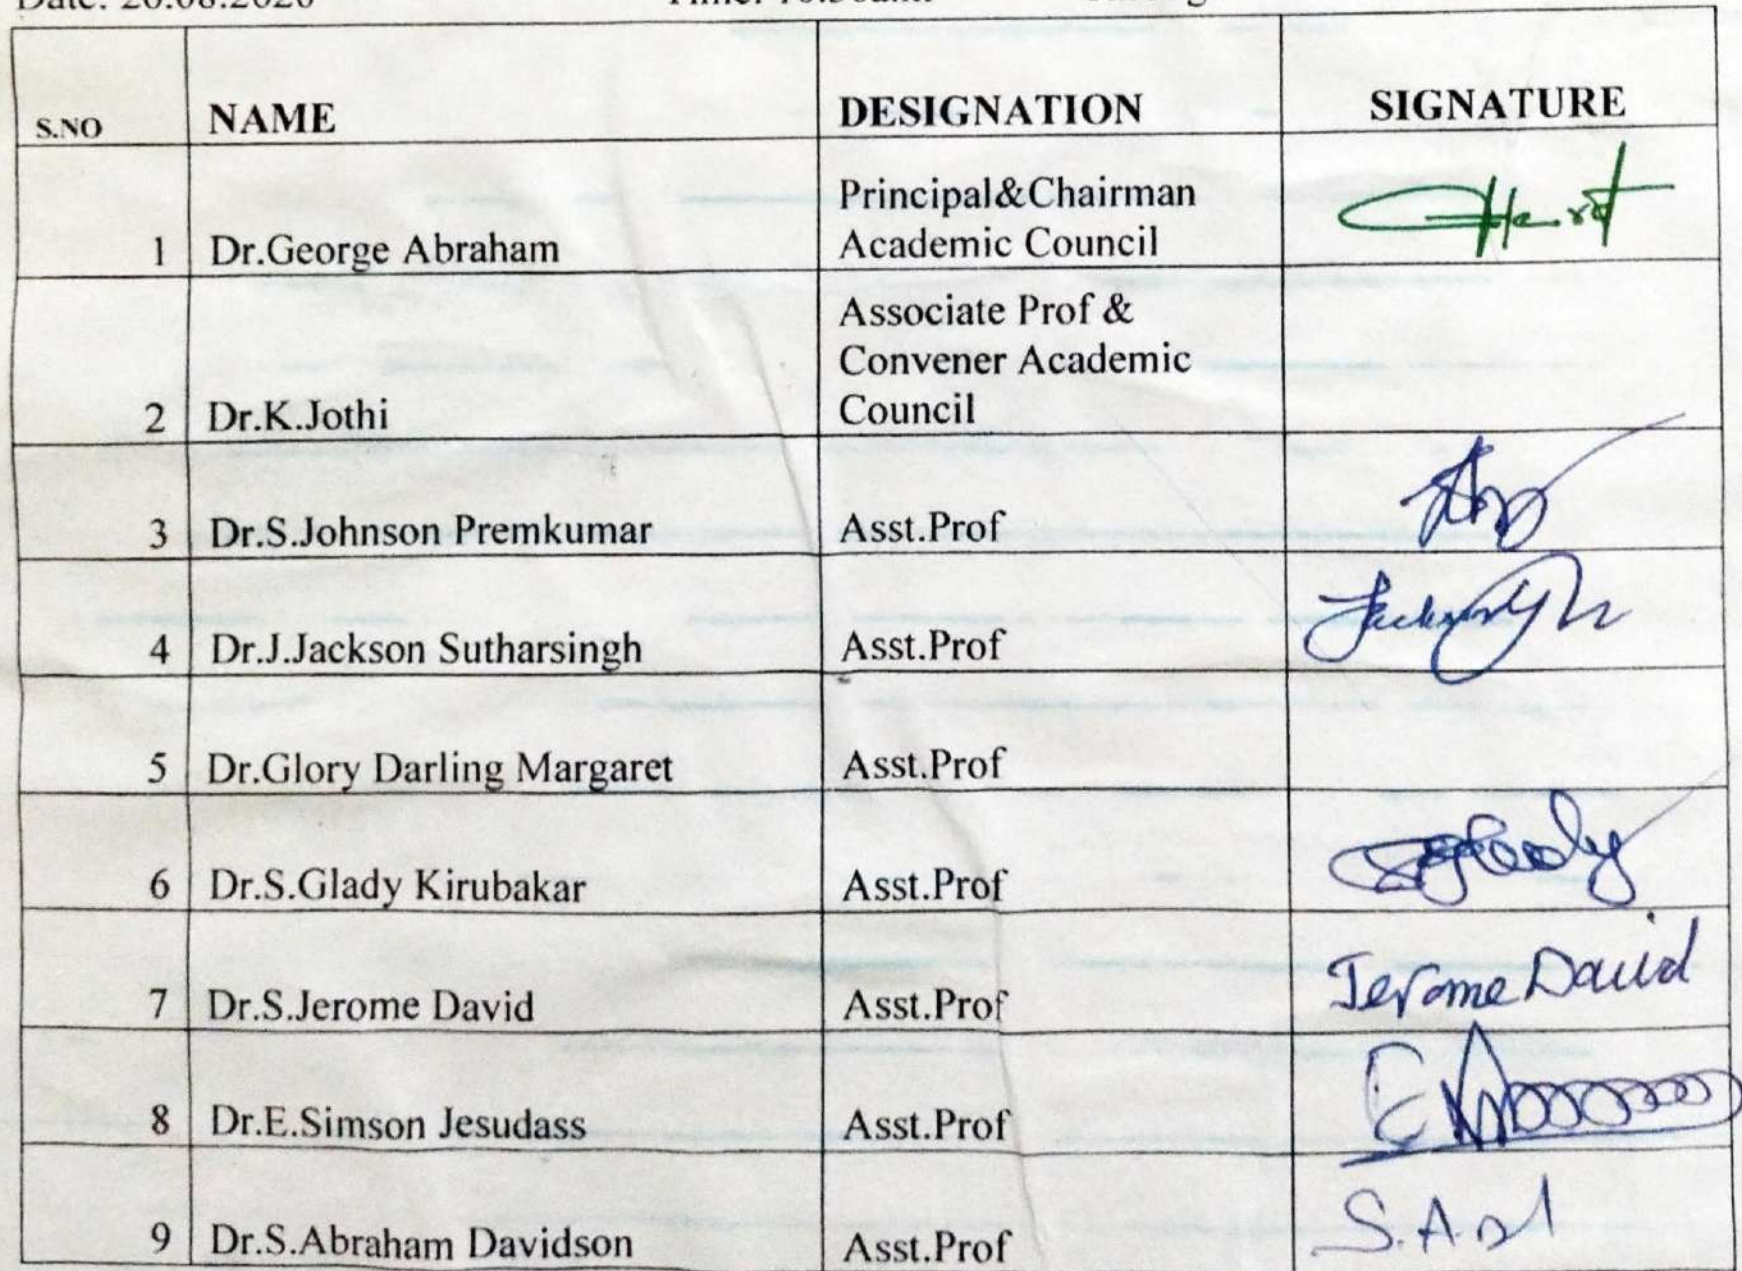 Date: 20.08.2020
S.NO NAME DESIGNATION SIGNATURE
Principal&Chairman
1 Dr.George Abraham Academic Council
Associate Prof &
Convener Academic
2 Dr.K.Jothi Council
3 Dr.S.Johnson Premkumar Asst.Prof
4 Dr.J.Jackson Sutharsingh Asst.Prof
5 Dr.Glory Darling Margaret Asst.Prof
6 Dr.S.Glady Kirubakar Asst.Prof
7 Dr.S.Jerome David Asst.Prof Jerome David
8 Dr.E.Simson Jesudass Asst.Prof
9 Dr.S.Abraham Davidson Asst.Prof